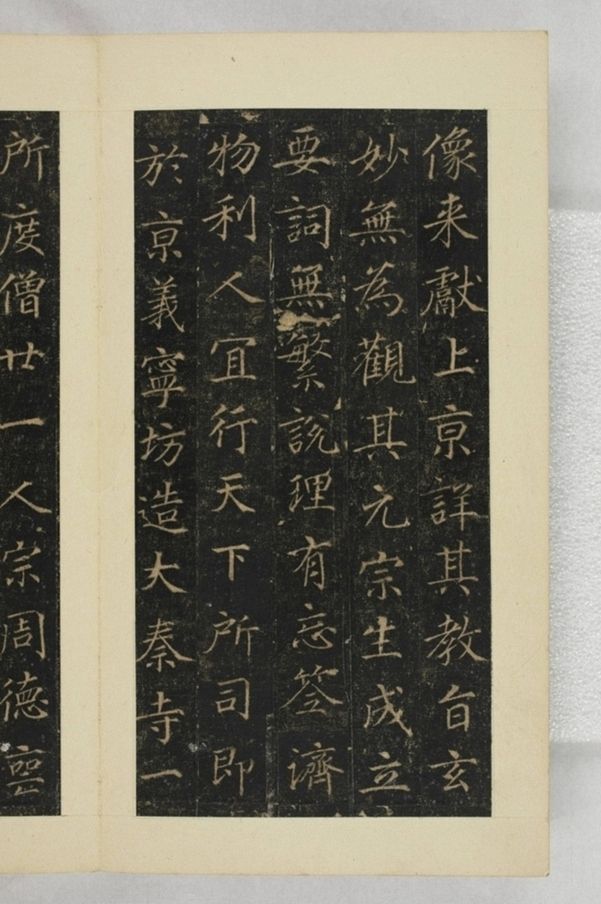 像来獻上京詳其教旨玄
妙無為觀其元宗生成立
要詞無繁說理有忘筌濟
物利人宜行天下所司即
於京義寧坊造大秦寺一
所度僧廿一人宗周德喪